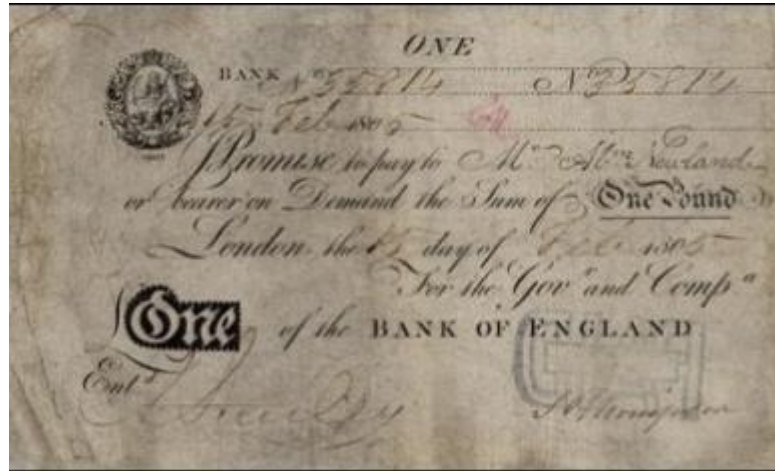 ONE
BANK No 35814 No 35814
15 Feb 1805
I Promise to pay to Mr. Abm Newland
or bearer on Demand the Sum of One Pound
London the 15 day of Feb 1805
For the Govr. and Compa.
One of the BANK OF ENGLAND
Entd.